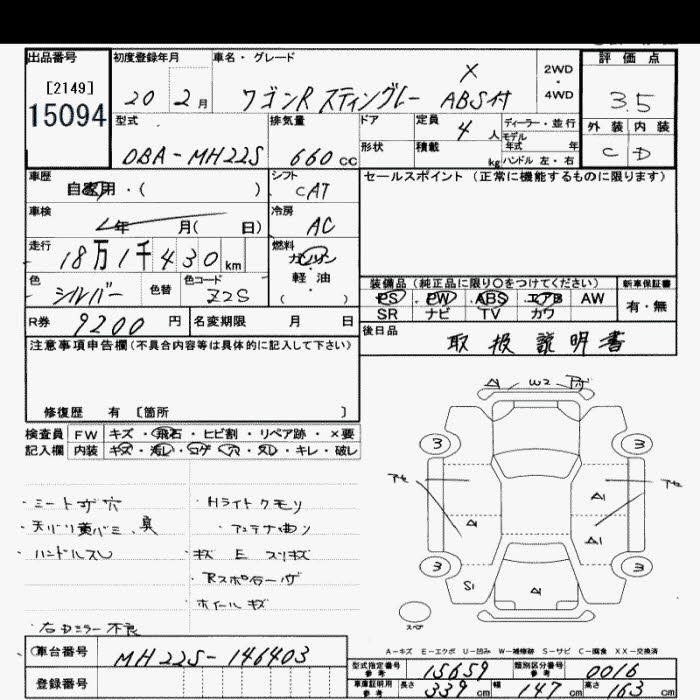 出品番号
[2149]
15094
初度登録年月
20 2月
車名・グレード
ワゴンR スティングレー X ABS付
2WD
4WD
評価点
3.5
外装 内装
C D
型式
DBA-MH22S
排気量
660cc
ドア
形状
定員
4人
積載
kg
ディーラー・並行
モデル
年式 年
ハンドル 左・右
車歴
自家用・( )
シフト
CAT
セールスポイント (正常に機能するものに限ります)
車検
年 月( 日)
冷房
AC
走行
18万1千430km
燃料
ガソリン
・
軽油
( )
色
シルバー
色替
色コード
Z2S
装備品 (純正品に限り○をつけてください)
PS PW ABS エアB AW
SR ナビ TV カワ
新車保証書
有・無
R券
9200円
名変期限 月 日
後日品
取扱説明書
注意事項申告欄(不具合内容等は具体的に記入して下さい)
修復歴 有 〔箇所 〕
検査員
記入欄
FW キズ・飛石・ヒビ割・リペア跡・×要
内装 キズ・汚レ・コゲ・穴・スレ・キレ・破レ
・シートコゲ穴
・ハンドルスレ
・Hライトクモリ
・アンテナ曲り
・キズ E スリキズ
・ホイールキズ
・右ドミラー不良
A W2
3 3
A1
A A1
3 3
S1 A
スペア
A-キズ E-エクボ U-凹み W-補修跡 S-サビ C-腐食 XX-交換済
車台番号
MH22S-146403
登録番号
型式指定番号
参考
15659
類別区分番号
参考
0016
車庫証明用
参考
長さ 339cm
幅 147cm
高さ 163cm